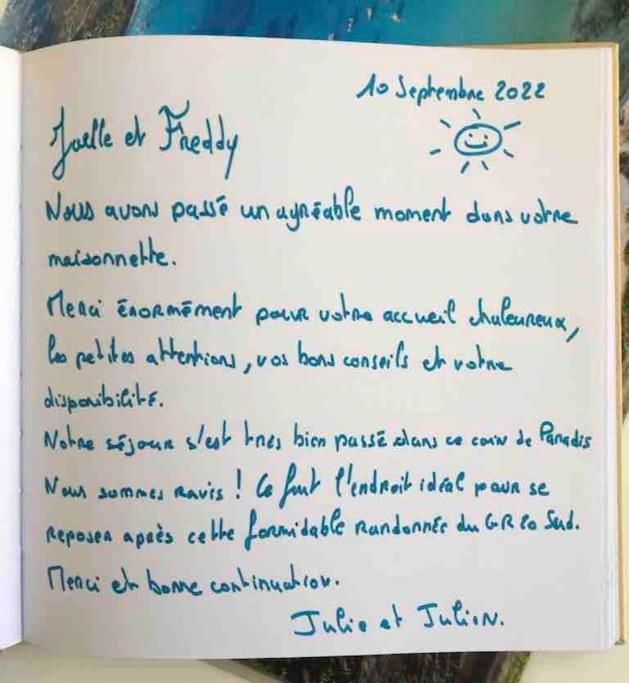 10 Septembre 2022
Joelle et Freddy
Nous avons passé un agréable moment dans votre
maisonnette.
Merci énormément pour votre accueil chaleureux,
les petites attentions, vos bons conseils et votre
disponibilité.
Notre séjour s'est très bien passé dans ce coin de Paradis
Nous sommes ravis ! Ce fut l'endroit idéal pour se
reposer après cette formidable randonnée du GR20 Sud.
Merci et bonne continuation.
Julie et Julien.